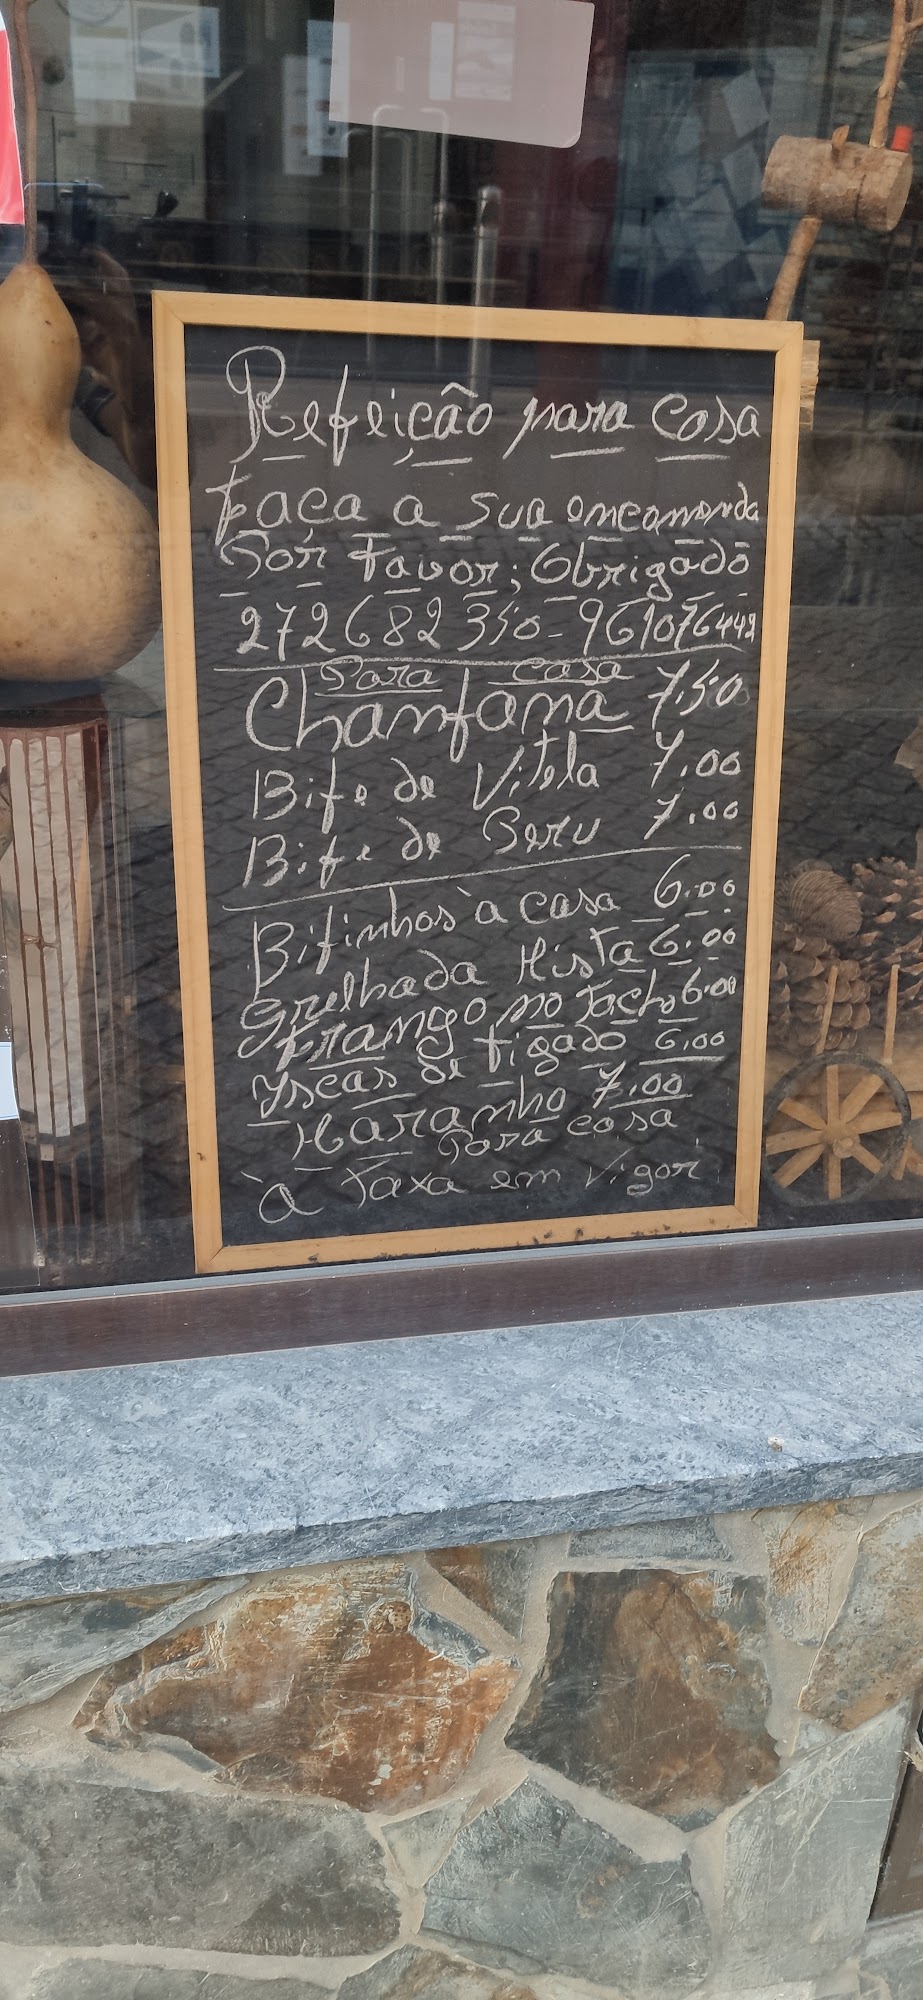 Refeição para casa
Faça a sua encomenda
Por Favor; Obrigado
272682350-961076442
Para casa
Chanfana 7.50
Bife de Vitela 7.00
Bife de Peru 7.00
Bifinhos à casa 6.00
Grelhada Mista 6.00
Frango no Tacho 6.00
Iscas de Figado 6.00
Maranho 7.00
Para casa
à Taxa em vigor